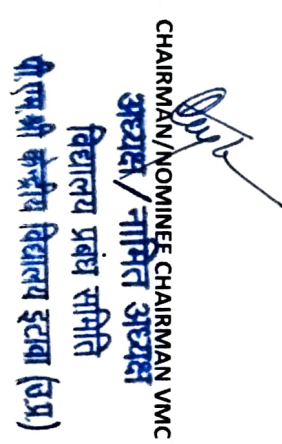 CHAIRMAN/NOMINEE CHAIRMAN VMC
अध्यक्ष/नामित अध्यक्ष
विद्यालय प्रबंध समिति
पी.एम.श्री केन्द्रीय विद्यालय इटावा (उ.प्र.)